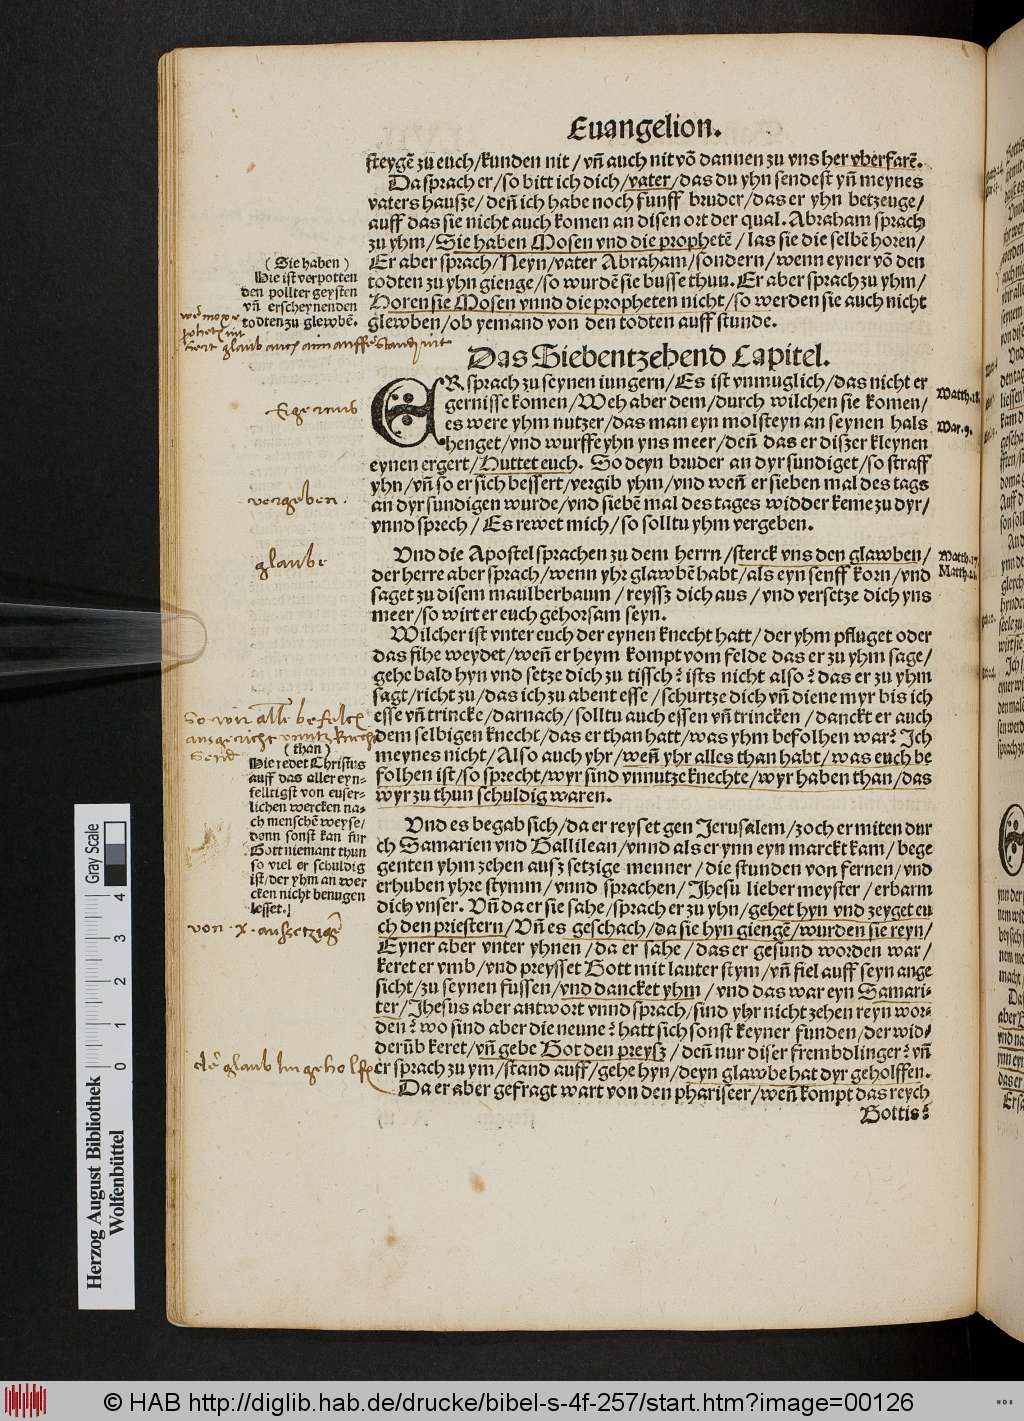 Euangelion.
steygẽ zu euch/kunden nit/ vñ auch nit võ dannen zu vns her vberfarẽ.
Da sprach er/so bitt ich dich/vater/das du yhn sendest yñ meynes
vaters hausze/ deñ ich habe noch funff bruder/das er yhn betzeuge/
auff das sie nicht auch komen an disen ort der qual. Abraham sprach
zu yhm/Sie haben Mosen vnd die prophetẽ / las sie die selbẽ horen/
Er aber sprach/Neyn/vater Abraham/sondern/wenn eyner võ den
todten zu yhn gienge/so wurdẽ sie busse thun. Er aber sprach zu yhm/
Horen sie Mosen vnnd die propheten nicht/so werden sie auch nicht
glewben/ob yemand von den todten auff stunde.
(Sie haben)
Hie ist verpotten
den pollter geysten
vñ erscheynenden
todten zu glewbẽ.
Das Siebentzehend Capitel.
ER sprach zu seynen iungern/Es ist vnmuglich/das nicht er
gernisse komen/Weh aber dem/durch wilchen sie komen/
es were yhm nutzer/das man eyn molsteyn an seynen hals
henget/vnd wurffe yhn yns meer/deñ das er diszer kleynen
eynen ergert/Huttet euch. So deyn bruder an dyr sundiget/so straff
yhn/vñ so er sich bessert/vergib yhm/vnd weñ er sieben mal des tags
an dyr sundigen wurde/vnd siebẽ mal des tages widder keme zu dyr/
vnnd sprech/ Es rewet mich/so solltu yhm vergeben.
Matth.18.
Mar.9.
vergeben.
glaube
Vnd die Apostel sprachen zu dem herrn/sterck vns den glawben/
der herre aber sprach/wenn yhr glawbẽ habt/als eyn senff korn/vnd
saget zu disem maulberbaum/ reyssz dich aus / vnd versetze dich yns
meer/so wirt er euch gehorsam seyn.
Matth.17.
Matth.21.
Wilcher ist vnter euch der eynen knecht hatt/ der yhm pfluget oder
das fihe weydet/weñ er heym kompt vom felde das er zu yhm sage/
gehe bald hyn vnd setze dich zu tissch? ists nicht also? das er zu yhm
sagt/richt zu/das ich zu abent esse/ schurtze dich vñ diene myr bis ich
esse vñ trincke/darnach/solltu auch essen vñ trincken / danckt er auch
dem selbigen knecht/das er than hatt/was yhm befolhen war? Ich
meynes nicht/Also auch yhr/weñ yhr alles than habt/was euch be
folhen ist/so sprecht/wyr sind vnnutze knechte/wyr haben than/das
wyr zu thun schuldig waren.
(than)
Hie redet Christus
auff das aller eyn-
felltigst von euser-
lichen wercken na-
ch menschẽ weyse/
denn sonst kan fur
Gott niemant thun
so viel er schuldig
ist/der yhm an wer
cken nicht benugen
lesset.]
Vnd es begab sich/da er reyset gen Jerusalem/zoch er miten dur
ch Samarien vnd Gallilean/vnnd als er ynn eyn marckt kam/ bege
genten yhm zehen ausz setzige menner / die stunden von fernen/vnd
erhuben yhre stymm/ vnnd sprachen/ Jhesu lieber meyster/ erbarm
dich vnser. Vñ da er sie sahe/sprach er zu yhn/gehet hyn vnd zeyget eu
ch den priestern/ Vñ es geschach/da sie hyn giengẽ/wurden sie reyn/
Eyner aber vnter yhnen / da er sahe/das er gesund worden war/
keret er vmb/vnd preysset Gott mit lauter stym/vñ fiel auff seyn ange
sicht/zu seynen fussen/vnd dancket yhm / vnd das war eyn Samari-
ter/Jhesus aber antwort vnnd sprach/sind yhr nicht zehen reyn wor-
den? wo sind aber die neune? hatt sich sonst keyner funden/der wid-
derũb keret/vñ gebe Got den preysz/ deñ nur diser frembdlinger? vñ
er sprach zu ym/stand auff/gehe hyn/deyn glawbe hat dyr geholffen.
Da er aber gefragt wart von den phariseer/weñ kompt das reych
Gottis?
Gray Scale
0 1 2 3 4
Herzog August Bibliothek
Wolfenbüttel
© HAB http://diglib.hab.de/drucke/bibel-s-4f-257/start.htm?image=00126